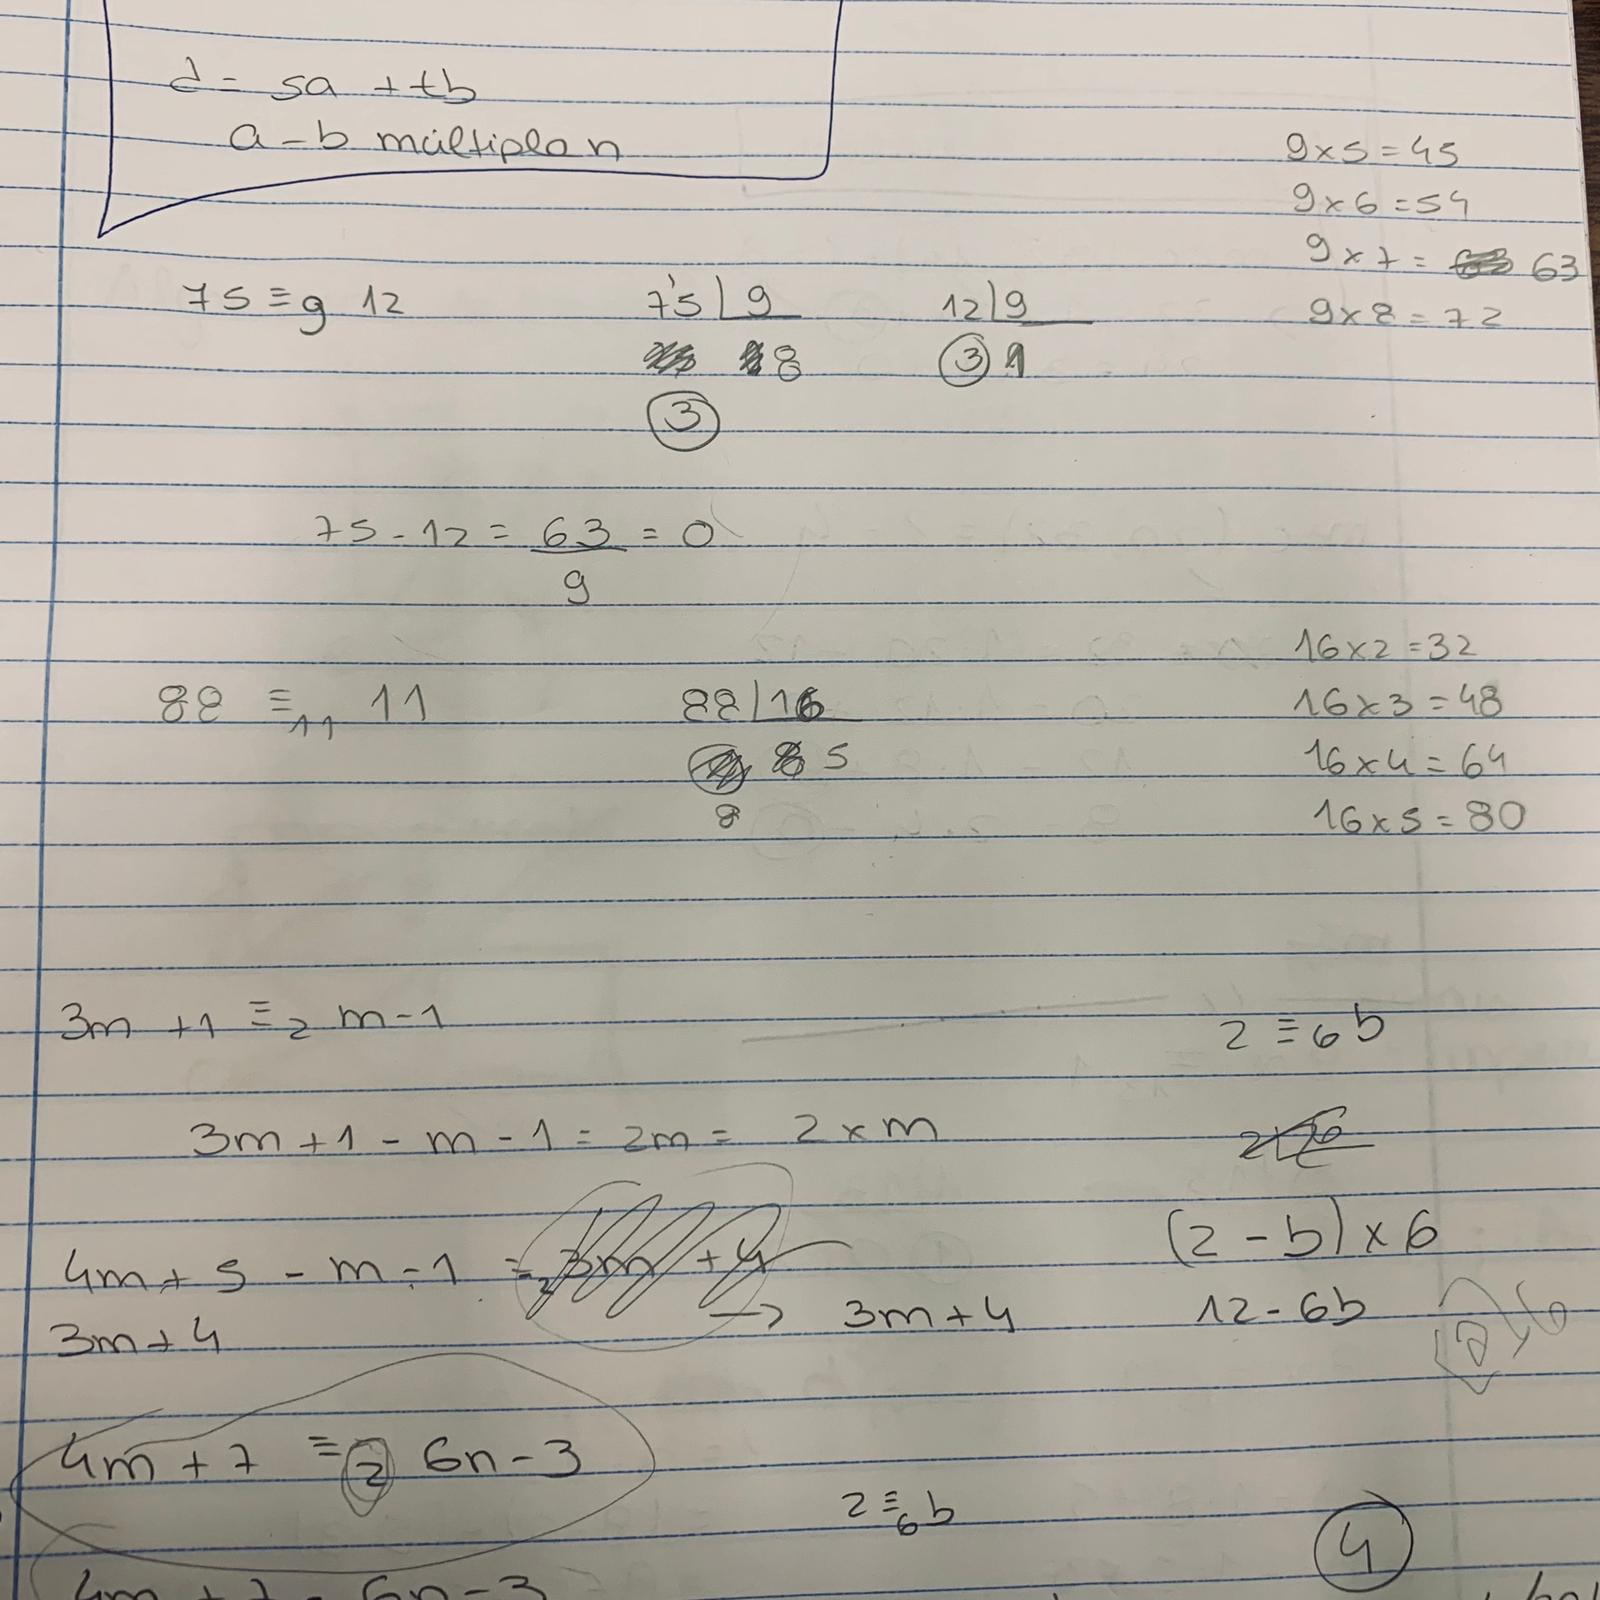 d = sa + tb
a - b múltiplo n
9 x 5 = 45
9 x 6 = 54
9 x 7 = 63
9 x 8 = 72
75 ≡9 12
75 | 9
8
3
12 | 9
3 1
75 - 12 = 63/9 = 0
16 x 2 = 32
16 x 3 = 48
16 x 4 = 64
16 x 5 = 80
88 ≡11 11
88 | 16
5
8
3m + 1 ≡2 m - 1
2 ≡6 b
3m + 1 - m - 1 = 2m = 2 x m
(2 - b) x 6
12 - 6b
4m + 5 - m - 1 =2 3m + 4
→ 3m + 4
3m + 4
4m + 7 ≡2 6n - 3
2 ≡6 b
4
4m + 7 - 6n - 3